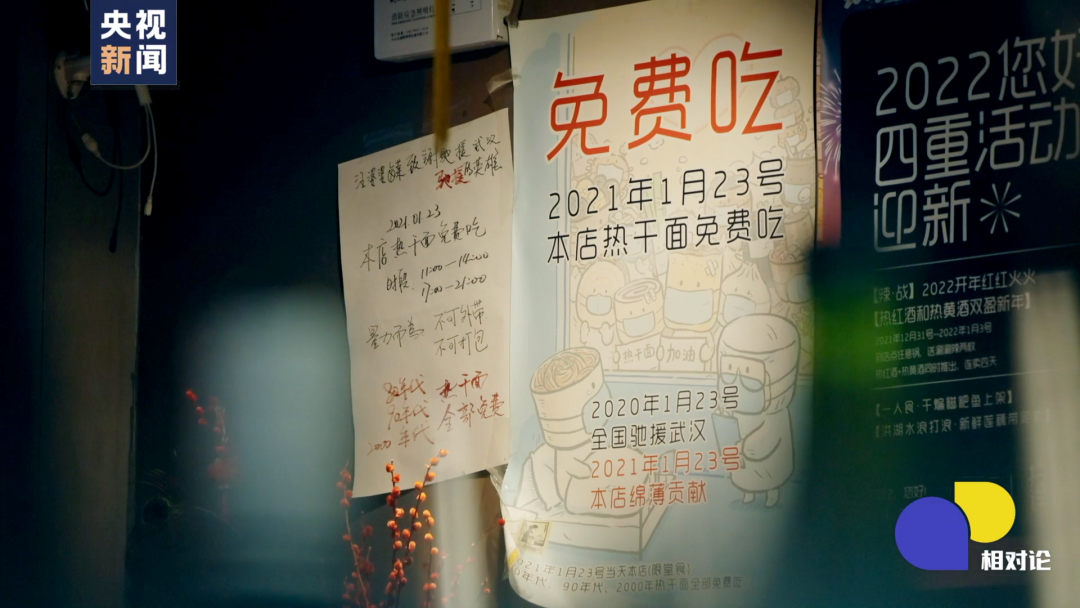 央视
新闻
汪婆婆
致敬驰援武汉
驰援的英雄
2021.01.23
本店热干面免费吃
时段:11:00—14:00
17:00—21:00
量力而为
不可外带
不可打包
80年代
90年代
2000年代
热干面
全部免费
免费吃
2021年1月23号
本店热干面免费吃
热干面
加油
2020年1月23号
全国驰援武汉
2021年1月23号
本店绵薄贡献
2021年1月23号当天本店(限堂食)
年代、90年代、2000年热干面全部免费吃
2022您好
四重活动
迎新
【辣·战】2022开年红红火火
【热红酒和热黄酒双盈新年】
2021年12月31号—2022年1月3号
【一人食·干煸糍粑鱼上架】
相对论